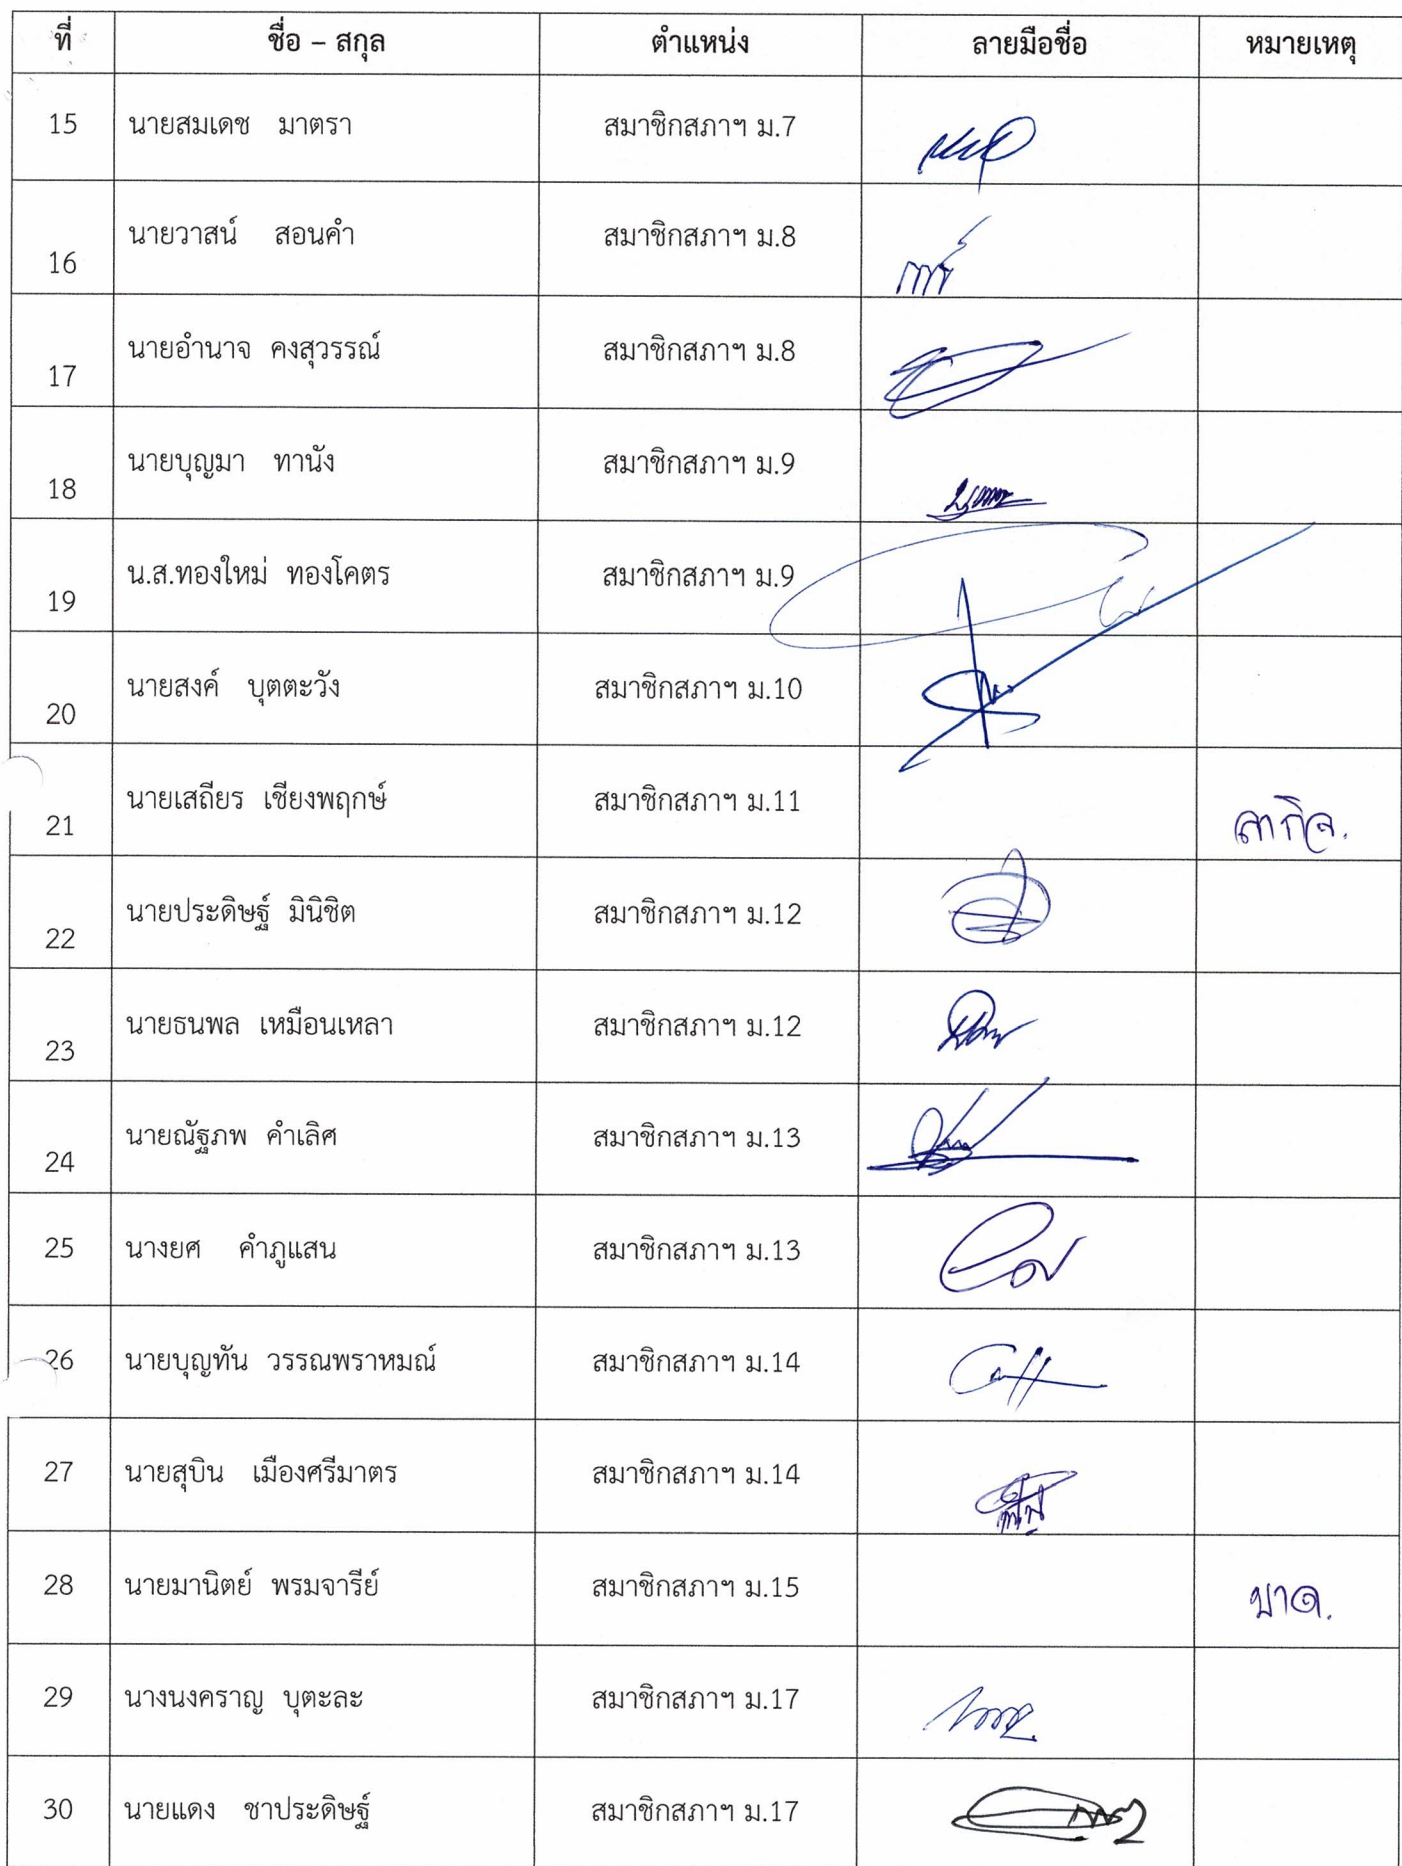 ที่ ชื่อ – สกุล ตำแหน่ง ลายมือชื่อ หมายเหตุ
15 นายสมเดช มาตรา สมาชิกสภาฯ ม.7
16 นายวาสน์ สอนคำ สมาชิกสภาฯ ม.8
17 นายอำนาจ คงสุวรรณ์ สมาชิกสภาฯ ม.8
18 นายบุญมา ทานัง สมาชิกสภาฯ ม.9
19 น.ส.ทองใหม่ ทองโคตร สมาชิกสภาฯ ม.9
20 นายสงค์ บุตตะวัง สมาชิกสภาฯ ม.10
21 นายเสถียร เชียงพฤกษ์ สมาชิกสภาฯ ม.11 ลากิจ.
22 นายประดิษฐ์ มินิชิต สมาชิกสภาฯ ม.12
23 นายธนพล เหมือนเหลา สมาชิกสภาฯ ม.12
24 นายณัฐภพ คำเลิศ สมาชิกสภาฯ ม.13
25 นางยศ คำภูแสน สมาชิกสภาฯ ม.13
26 นายบุญทัน วรรณพราหมณ์ สมาชิกสภาฯ ม.14
27 นายสุบิน เมืองศรีมาตร สมาชิกสภาฯ ม.14
28 นายมานิตย์ พรมจารีย์ สมาชิกสภาฯ ม.15 ขาด.
29 นางนงคราญ บุตะละ สมาชิกสภาฯ ม.17
30 นายแดง ชาประดิษฐ์ สมาชิกสภาฯ ม.17